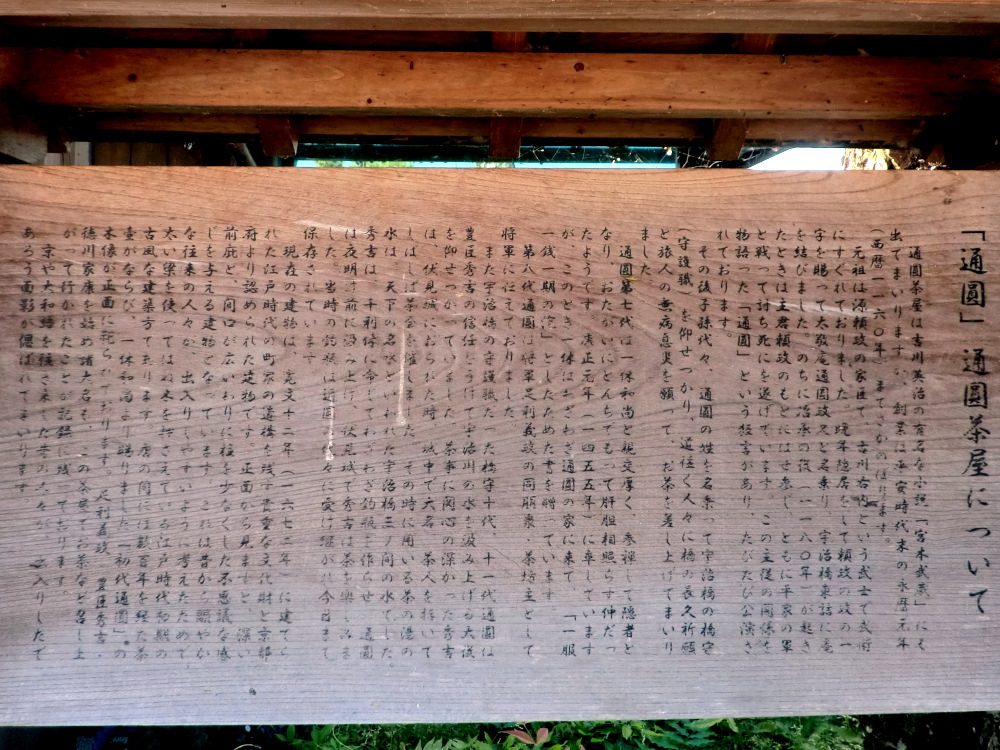 「通圓」通圓茶屋について
通圓茶屋は吉川英治の有名な小説「宮本武蔵」にそ
出てまいりますが、創業は平安時代末の永暦元年
(西暦一一六〇年)までさかのぼります。
元祖は源頼政の家臣で、古川右内という武士で武術
にすぐれておりました。晩年隠居をして頼政の政の一
字を賜って太敬庵通圓政久と名乗り、宇治橋東詰に庵
を結びました。のちに治承の役(一一八〇年)が起き
たときは主君頼政のもとにはせ参じ、ともに平家の軍
と戦って討ち死にを遂げています。この主従の関係を
物語った「通圓」という狂言があり、たびたび公演さ
れております。
その後子孫代々、通圓の姓を名乗って宇治橋の橋守
(守護職)を仰せつかり、道往く人々に橋の長久祈願
と旅人の無病息災を願って、お茶を差し上げてまいり
ました。
通圓第七代は一休和尚と親交厚く、参禅して隠者と
なり、おたがいにとんちでもって肝胆相照らす仲だっ
たようです。康正元年(一四五五年)に卒しています
が、このとき一休はわざわざ通圓の家に来て、「一服
一銭一期の泡」としたためた書を贈っています。
第八代通圓は将軍足利義政の同朋衆・茶坊主として
将軍に仕えておりました。
また宇治橋の守護職だった橋守十代、十一代通圓は
豊臣秀吉の信任をうけて宇治川の水を汲み上げる大役
を仰せつかっていました。茶事に関心の深かった秀吉
は、伏見城におられた時、城中で大名、茶人を招いて
しばしば茶会を催しました。その時に用いる茶の湯の
水は、天下の名水といわれた宇治橋三ノ間の水でした。
秀吉は、千利休に命じてわざわざ釣瓶を作らせ、通圓
は夜明け前に汲み上げ、伏見城で秀吉は茶を楽しみま
した。当時の釣瓶は通圓家代々に受け継がれ今日まで
保存されています。
現在の建物は、寛文十二年(一六七二年)に建てら
れた江戸時代の町家の遺構を残す貴重な文化財と京都
府より認められた建物です。正面から見ますと、深い
前庇と、間口が広いわりに柱を少なくした不思議な感
じを与える建物となっています。これは昔から頭やか
な往来の人々が、出入りしやすいように考えたためで、
太い梁を使ってはね木を持さえている江戸時代初期の
古風な建築方であります。店の間には数百年を経た茶
壺がならび、一休和尚より賜りました「初代通圓」の
木像が正面に祀らわております。足利義政、豊臣秀吉、
徳川家康を始め諸大名も、この茶屋でお茶など召し上
がって行かれたことが記録に残っております。
京や大和路を往き来した昔の人々が、出入りしたで
あろう面影が偲ばれてまいります